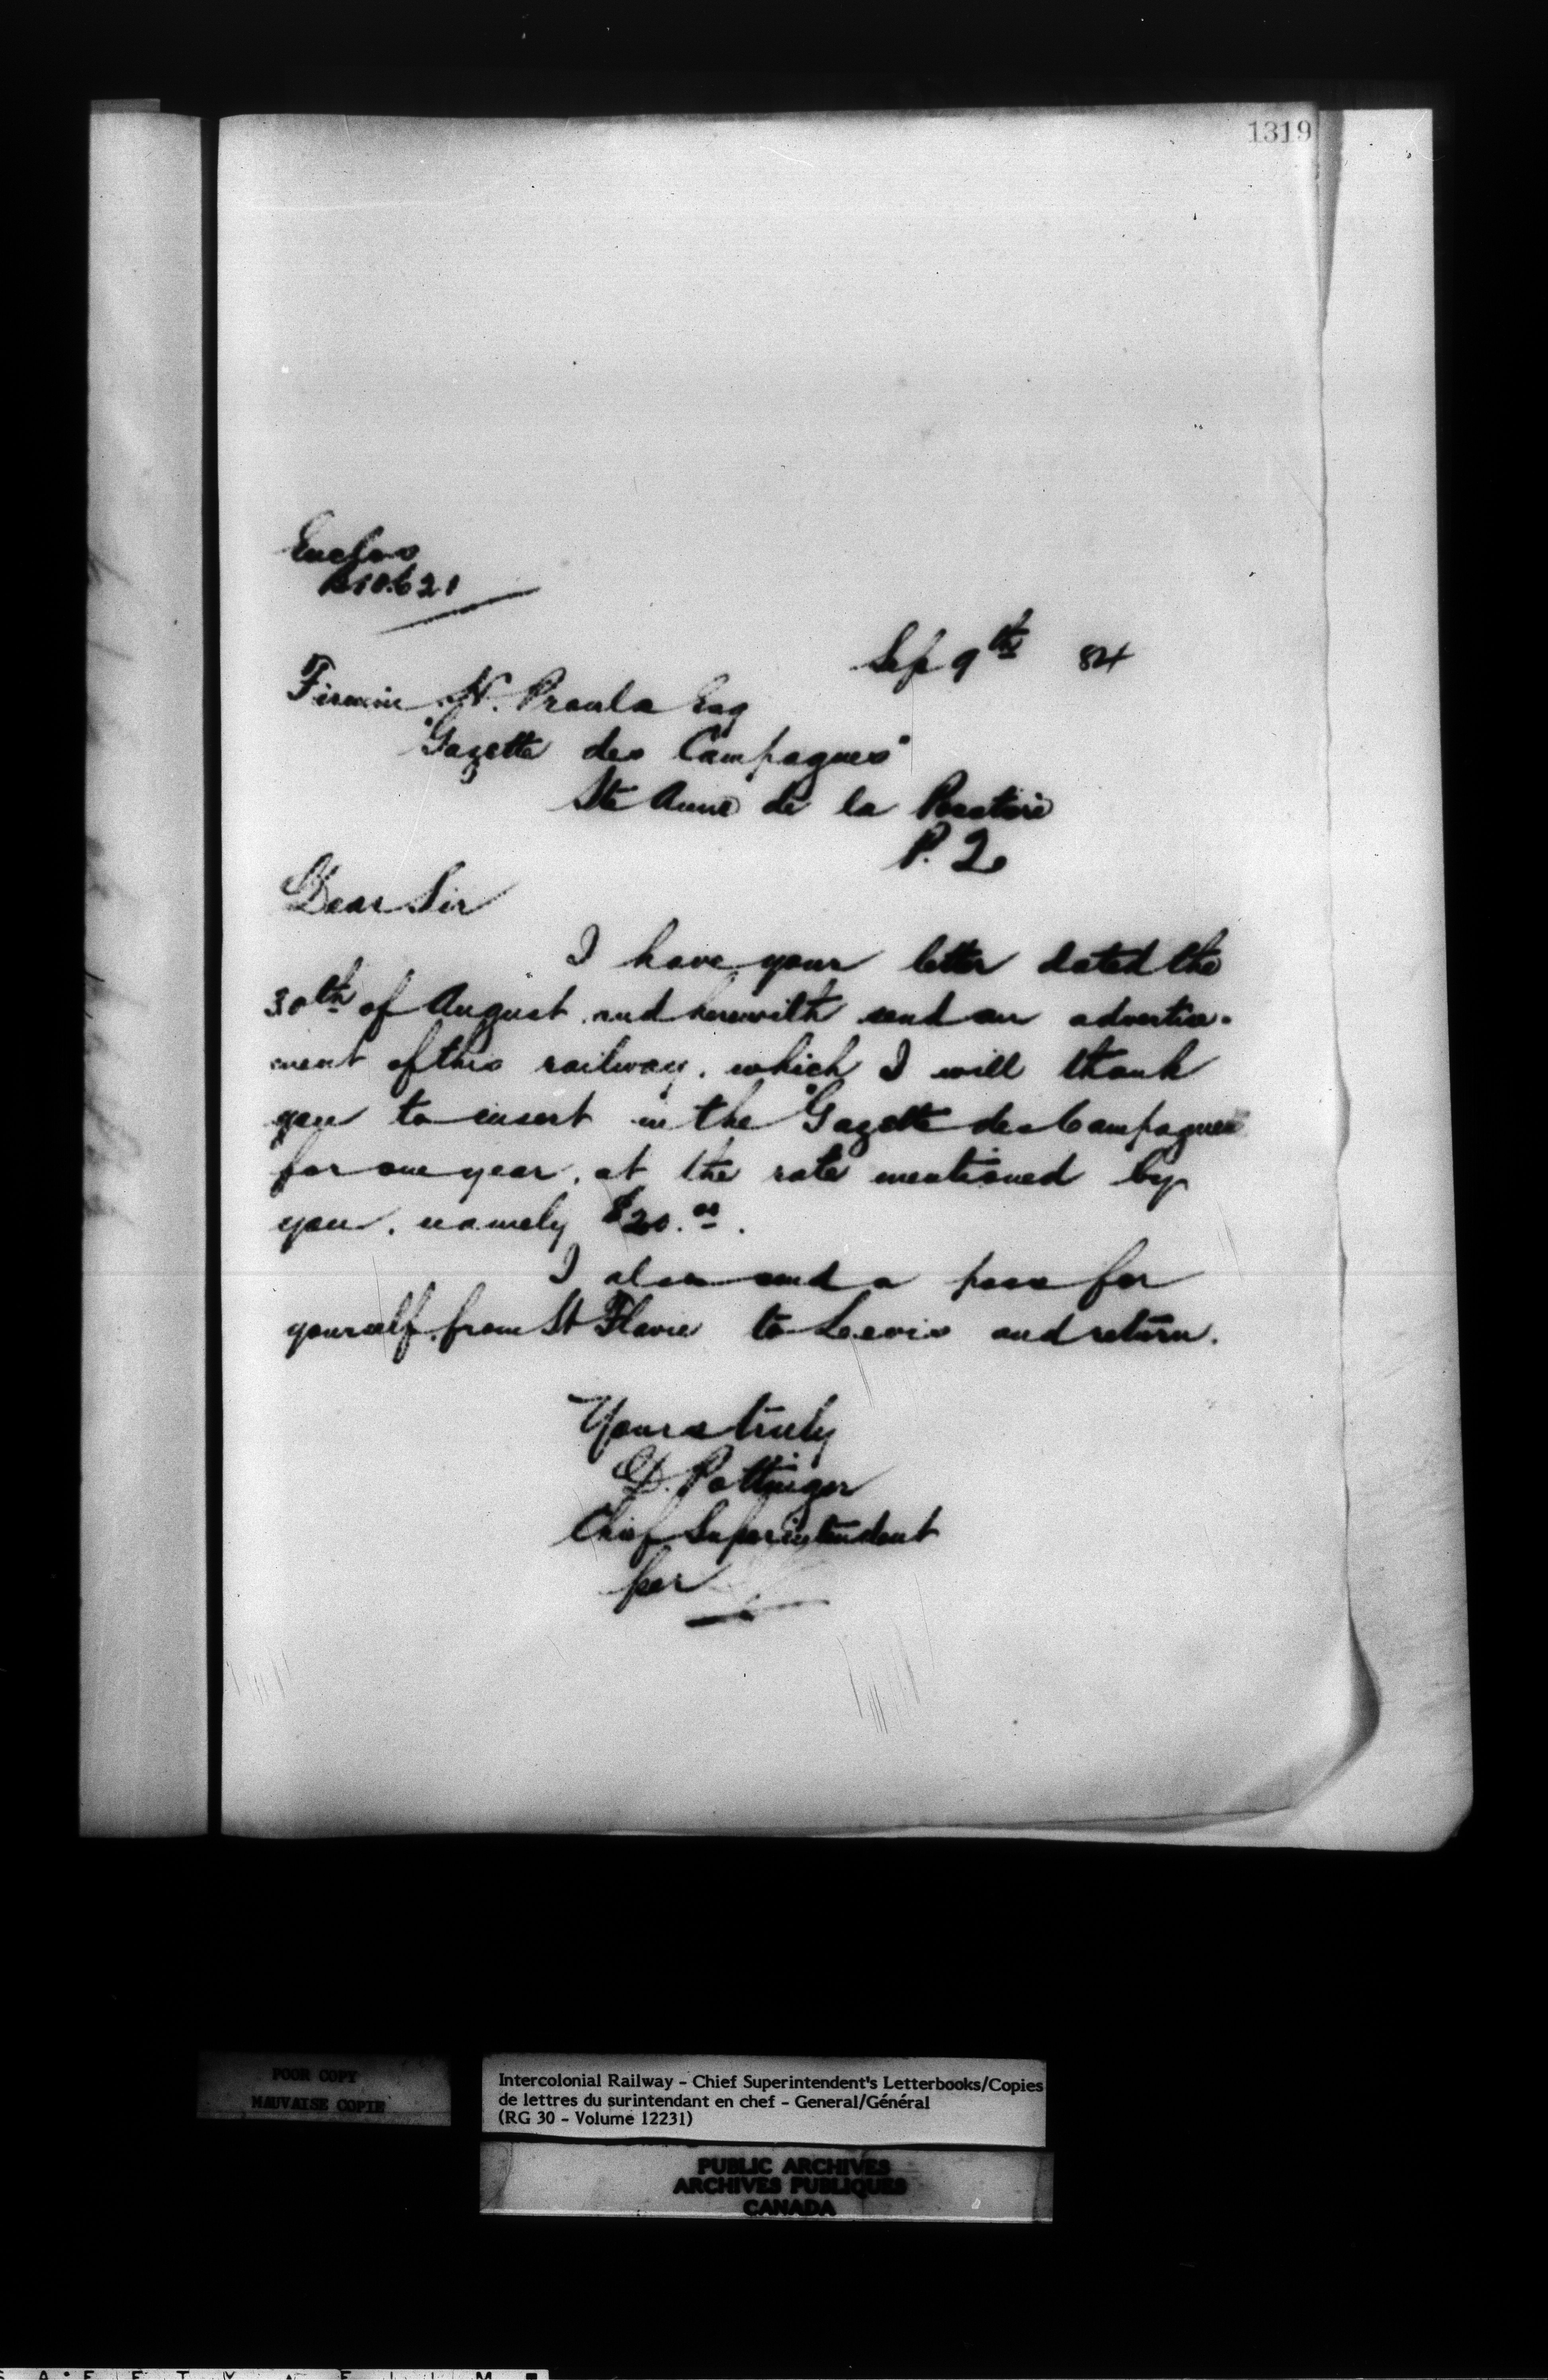 1319
Enclos
Sep 9th 84
Firmin N. Proulx Esq
"Gazette des Campagnes"
Ste Anne de la Pocatiere
P. Q
Dear Sir
I have your letter dated the
30th of August and herewith send an advertise-
ment of this railway, which I will thank
you to insert in the "Gazette des Campagnes
for one year, at the rate mentioned by
you, namely $20.00.
I also send a pass for
yourself from St Flavie to Levis and return.
Yours truly
D. Pottinger
Chief Superintendent
per
POOR COPY
MAUVAISE COPIE
Intercolonial Railway - Chief Superintendent's Letterbooks/Copies
de lettres du surintendant en chef - General/Général
(RG 30 - Volume 12231)
PUBLIC ARCHIVES
ARCHIVES PUBLIQUES
CANADA